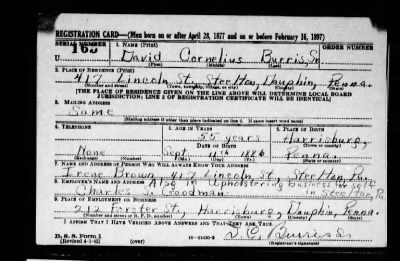 REGISTRATION CARD—(Men born on or after April 28, 1877 and on or before February 16, 1897)
SERIAL NUMBER 1. NAME (Print) ORDER NUMBER
U 165 David Cornelius Burris, Sr.
(First) (Middle) (Last)
2. PLACE OF RESIDENCE (Print)
417 Lincoln St., Steelton, Dauphin, Penna.
(Number and street) (Town, township, village, or city) (County) (State)
[THE PLACE OF RESIDENCE GIVEN ON THE LINE ABOVE WILL DETERMINE LOCAL BOARD
JURISDICTION; LINE 2 OF REGISTRATION CERTIFICATE WILL BE IDENTICAL]
3. MAILING ADDRESS
Same
[Mailing address if other than place indicated on line 2. If same insert word same]
4. TELEPHONE 5. AGE IN YEARS 6. PLACE OF BIRTH
55 years Harrisburg,
DATE OF BIRTH (Town or county)
None Sept. 11th 1886 Penna.
(Exchange) (Number) (Mo.) (Day) (Yr.) (State or country)
7. NAME AND ADDRESS OF PERSON WHO WILL ALWAYS KNOW YOUR ADDRESS
Irene Brown 417 Lincoln St., Steelton, Pa.
8. EMPLOYER'S NAME AND ADDRESS Also in Upholstering business for self
Charles Goodman in Steelton, Pa.
9. PLACE OF EMPLOYMENT OR BUSINESS
212 Forster St., Harrisburg, Dauphin, Penna.
(Number and street or R. F. D. number) (Town) (County) (State)
I AFFIRM THAT I HAVE VERIFIED ABOVE ANSWERS AND THAT THEY ARE TRUE.
D. S. S. Form 1
(Revised 4-1-42) (over) D. C. Burris Sr.
(Registrant's signature)